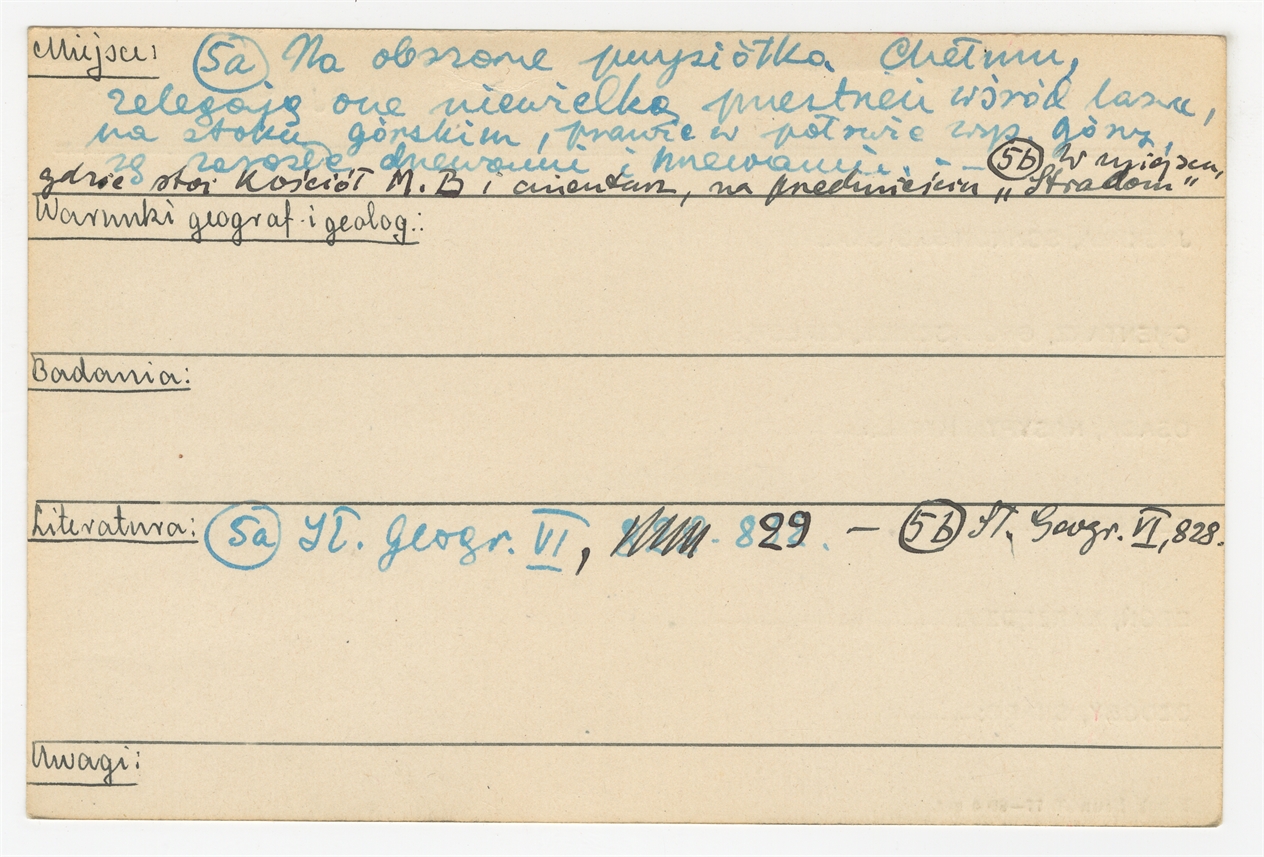 Miejsce:
5a Na obszarze przysiółka Chełmu,
zalegają one niewielką przestrzeń wśród lasu,
na stoku górskim, prawie w połowie wys. góry,
są zarosłe drzewami i krzewami. - 5b W miejscu,
gdzie stoi Kościół M. B i cmentarz, na przedmieściu „Stradom"
Warunki geograf. i geolog.:
Badania:
Literatura: 5a Sł. Geogr. VI, 29 - 5b Sł. Geogr. VI, 828.
Uwagi: